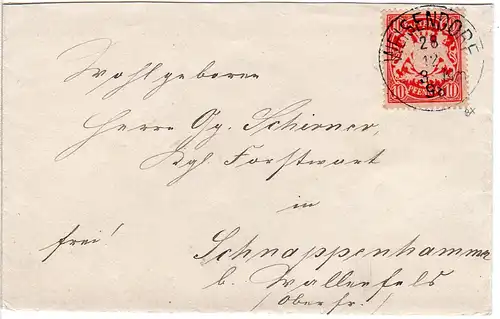 WEISENDORF
28
12
98
10 PFENNIG 10
Wohlgeboren
Herrn Gg. Schirner,
Kgl. Forstwart
in
frei!
Schnappenhammer
b. Wallenfels
/Oberfr./